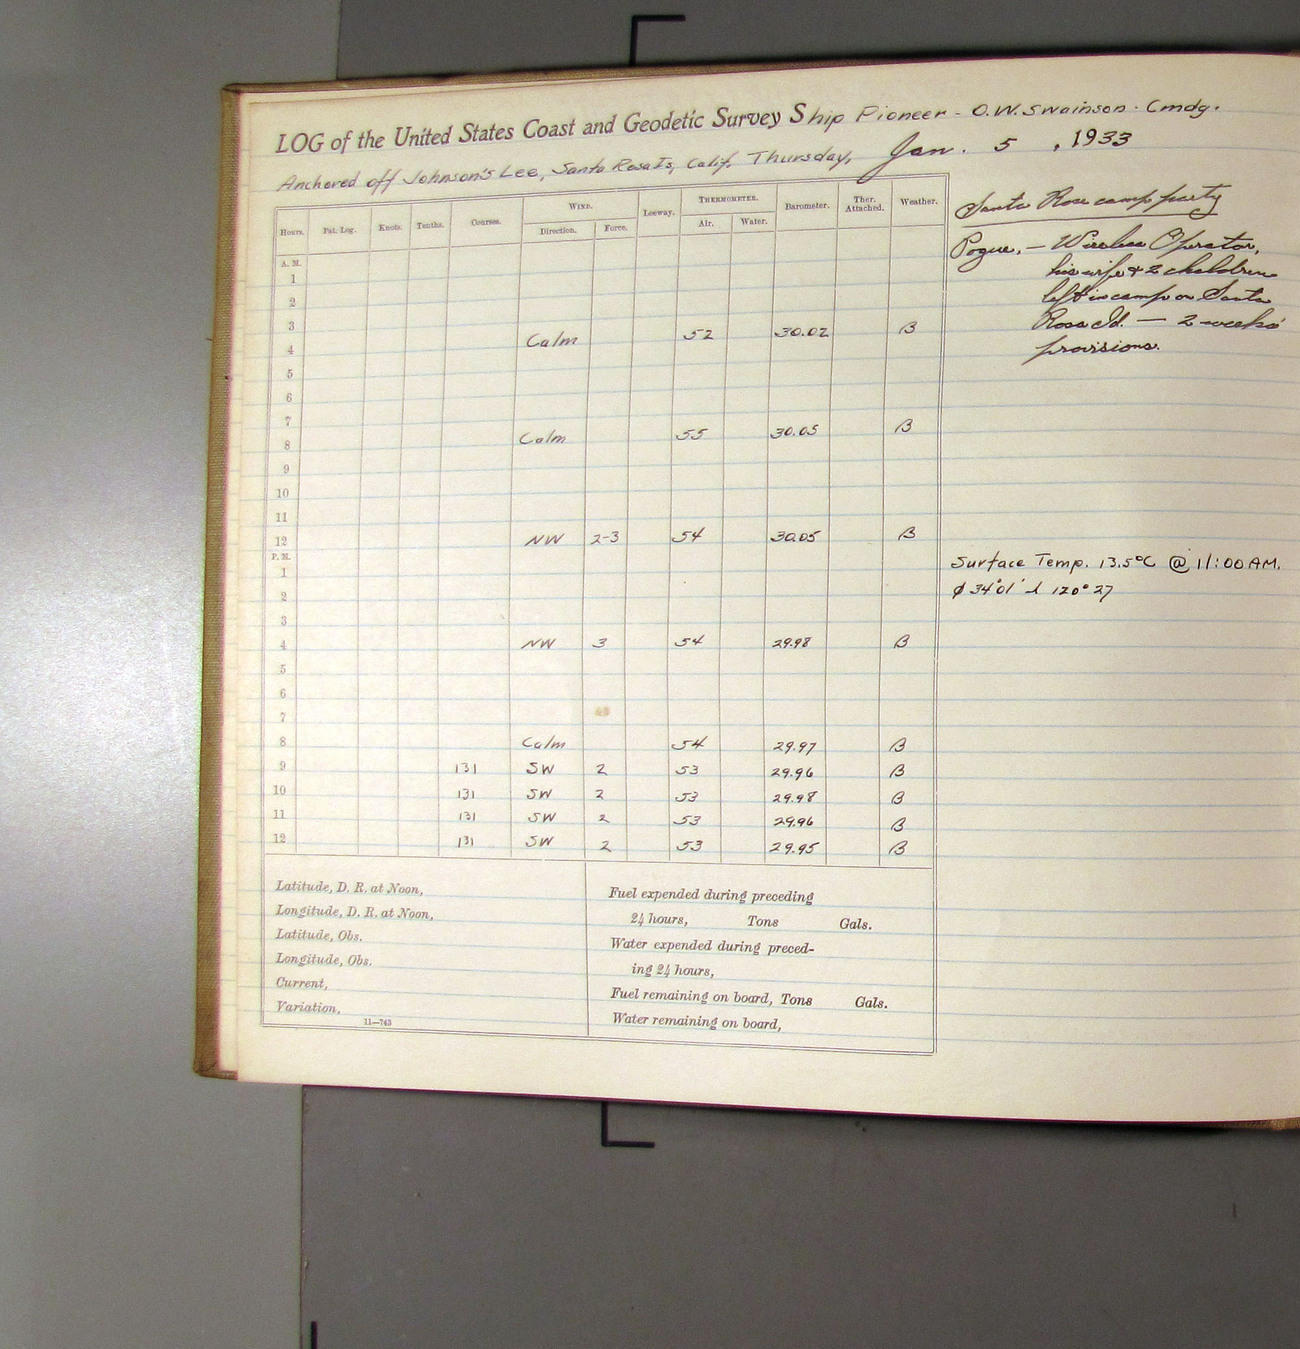 LOG of the United States Coast and Geodetic Survey Ship Pioneer - O.W. Swainson - Cmdg.
Anchored off Johnson's Lee, Santa Rosa Is, Calif. Thursday, Jan. 5, 1933
Hours. Pat. Log. Knots. Tenths. Courses. WIND. Leeway. THERMOMETER. Barometer. Ther. Attached. Weather.
Direction. Force. Air. Water.
A. M.
1
2
3
4 Calm 52 30.02 B
5
6
7
8 Calm 55 30.05 B
9
10
11
12 NW 2-3 54 30.05 B
P. M.
1
2
3
4 NW 3 54 29.98 B
5
6
7
8 Calm 54 29.97 B
9 131 SW 2 53 29.96 B
10 131 SW 2 53 29.98 B
11 131 SW 2 53 29.96 B
12 131 SW 2 53 29.95 B
Latitude, D. R. at Noon,
Longitude, D. R. at Noon,
Latitude, Obs.
Longitude, Obs.
Current,
Variation,
11—743
Fuel expended during preceding
24 hours, Tons Gals.
Water expended during preced-
ing 24 hours,
Fuel remaining on board, Tons Gals.
Water remaining on board,
Santa Rosa camp party
Pogue, — Wireless Operator,
his wife & 2 children
left in camp on Santa
Rosa Id. — 2 weeks'
provisions.
Surface Temp. 13.5°C @ 11:00 AM.
φ 34°01' λ 120° 27